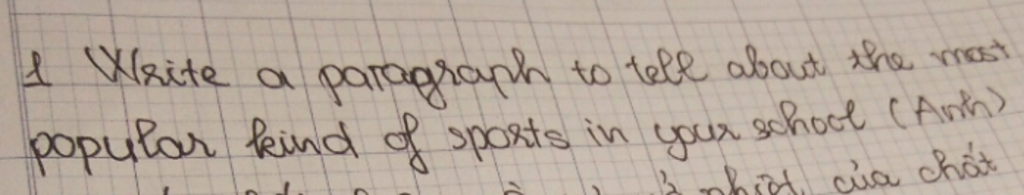 1 Write a paragraph to tell about the most
popular kind of sports in your school (Anh)
nhiệt của chất